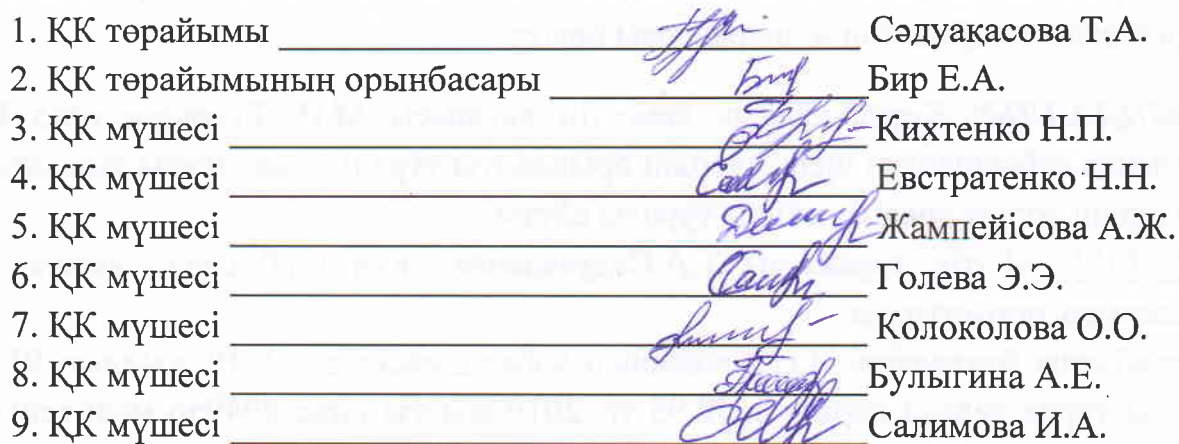 1. ҚК төрайымы Сәдуақасова Т.А.
2. ҚК төрайымының орынбасары Бир Е.А.
3. ҚК мүшесі Кихтенко Н.П.
4. ҚК мүшесі Евстратенко Н.Н.
5. ҚК мүшесі Жампейісова А.Ж.
6. ҚК мүшесі Голева Э.Э.
7. ҚК мүшесі Колоколова О.О.
8. ҚК мүшесі Булыгина А.Е.
9. ҚК мүшесі Салимова И.А.